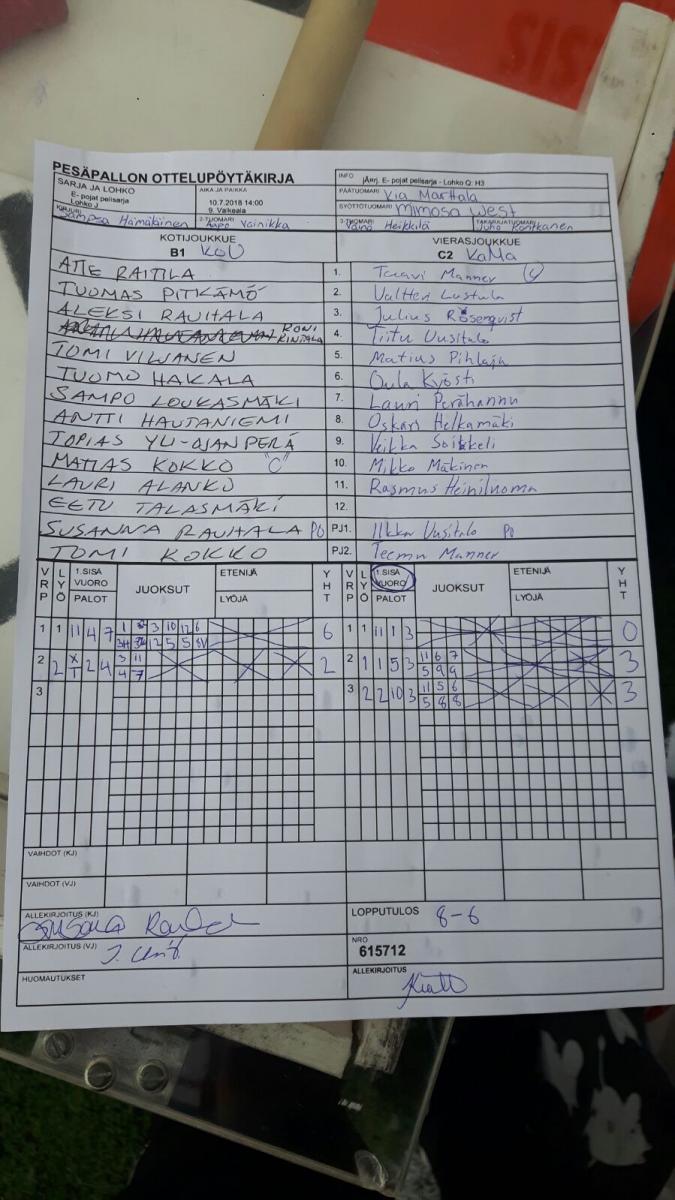 PESÄPALLON OTTELUPÖYTÄKIRJA
INFO jÄrrj. E- pojat pelisarja - Lohko Q: H3
SARJA JA LOHKO
E- pojat pelisarja
Lohko J
AIKA JA PAIKKA
10.7.2018 14:00
9. Valkeala
PÄÄTUOMARI Kia Marttala
SYÖTTÖTUOMARI Mimosa West
KIRJURI Sampsa Hämäläinen
2-TUOMARI Aapo Vainikka
3-TUOMARI Väinö Heikkilä
TAKARAJATUOMARI Juho Kontkanen
KOTIJOUKKUE
B1 KoU
VIERASJOUKKUE
C2 KaMa
ATTE RAITILA 1. Taavi Manner C
TUOMAS PITKÄMÖ 2. Valtteri Lustula
ALEKSI RAUHALA 3. Julius Rosenqvist
RONI RINTALA 4. Tiitu Uusitalo
TOMI VILJANEN 5. Matius Pihlaja
TUOMO HAKALA 6. Oula Kyösti
SAMPO LOUKASMÄKI 7. Lauri Perähannu
ANTTI HAUTANIEMI 8. Oskari Helkamäki
TOPIAS YLI-OJANPERÄ 9. Veikka Soikkeli
MATIAS KOKKO "C" 10. Mikko Mäkinen
LAURI ALANKO 11. Rasmus Heiniluoma
EETU TALASMÄKI 12.
SUSANNA RAUHALA PO PJ1. Ilkka Uusitalo PO
TOMI KOKKO PJ2. Teemu Manner
VRP LYÖ 1.SISÄ VUORO PALOT JUOKSUT ETENIJÄ LYÖJÄ YHT VRP LYÖ 1.SISÄ VUORO PALOT JUOKSUT ETENIJÄ LYÖJÄ YHT
1 1 11 4 7 6 1 1 11 1 3 0
2 2 X 2 4 3 11 2 2 1 1 5 3 11 6 7 3
T 4 7 5 9 9
3 3 2 2 10 3 11 5 6 3
5 8 8
VAIHDOT (KJ)
VAIHDOT (VJ)
ALLEKIRJOITUS (KJ)
LOPPUTULOS 8-6
ALLEKIRJOITUS (VJ)
NRO
615712
HUOMAUTUKSET
ALLEKIRJOITUS